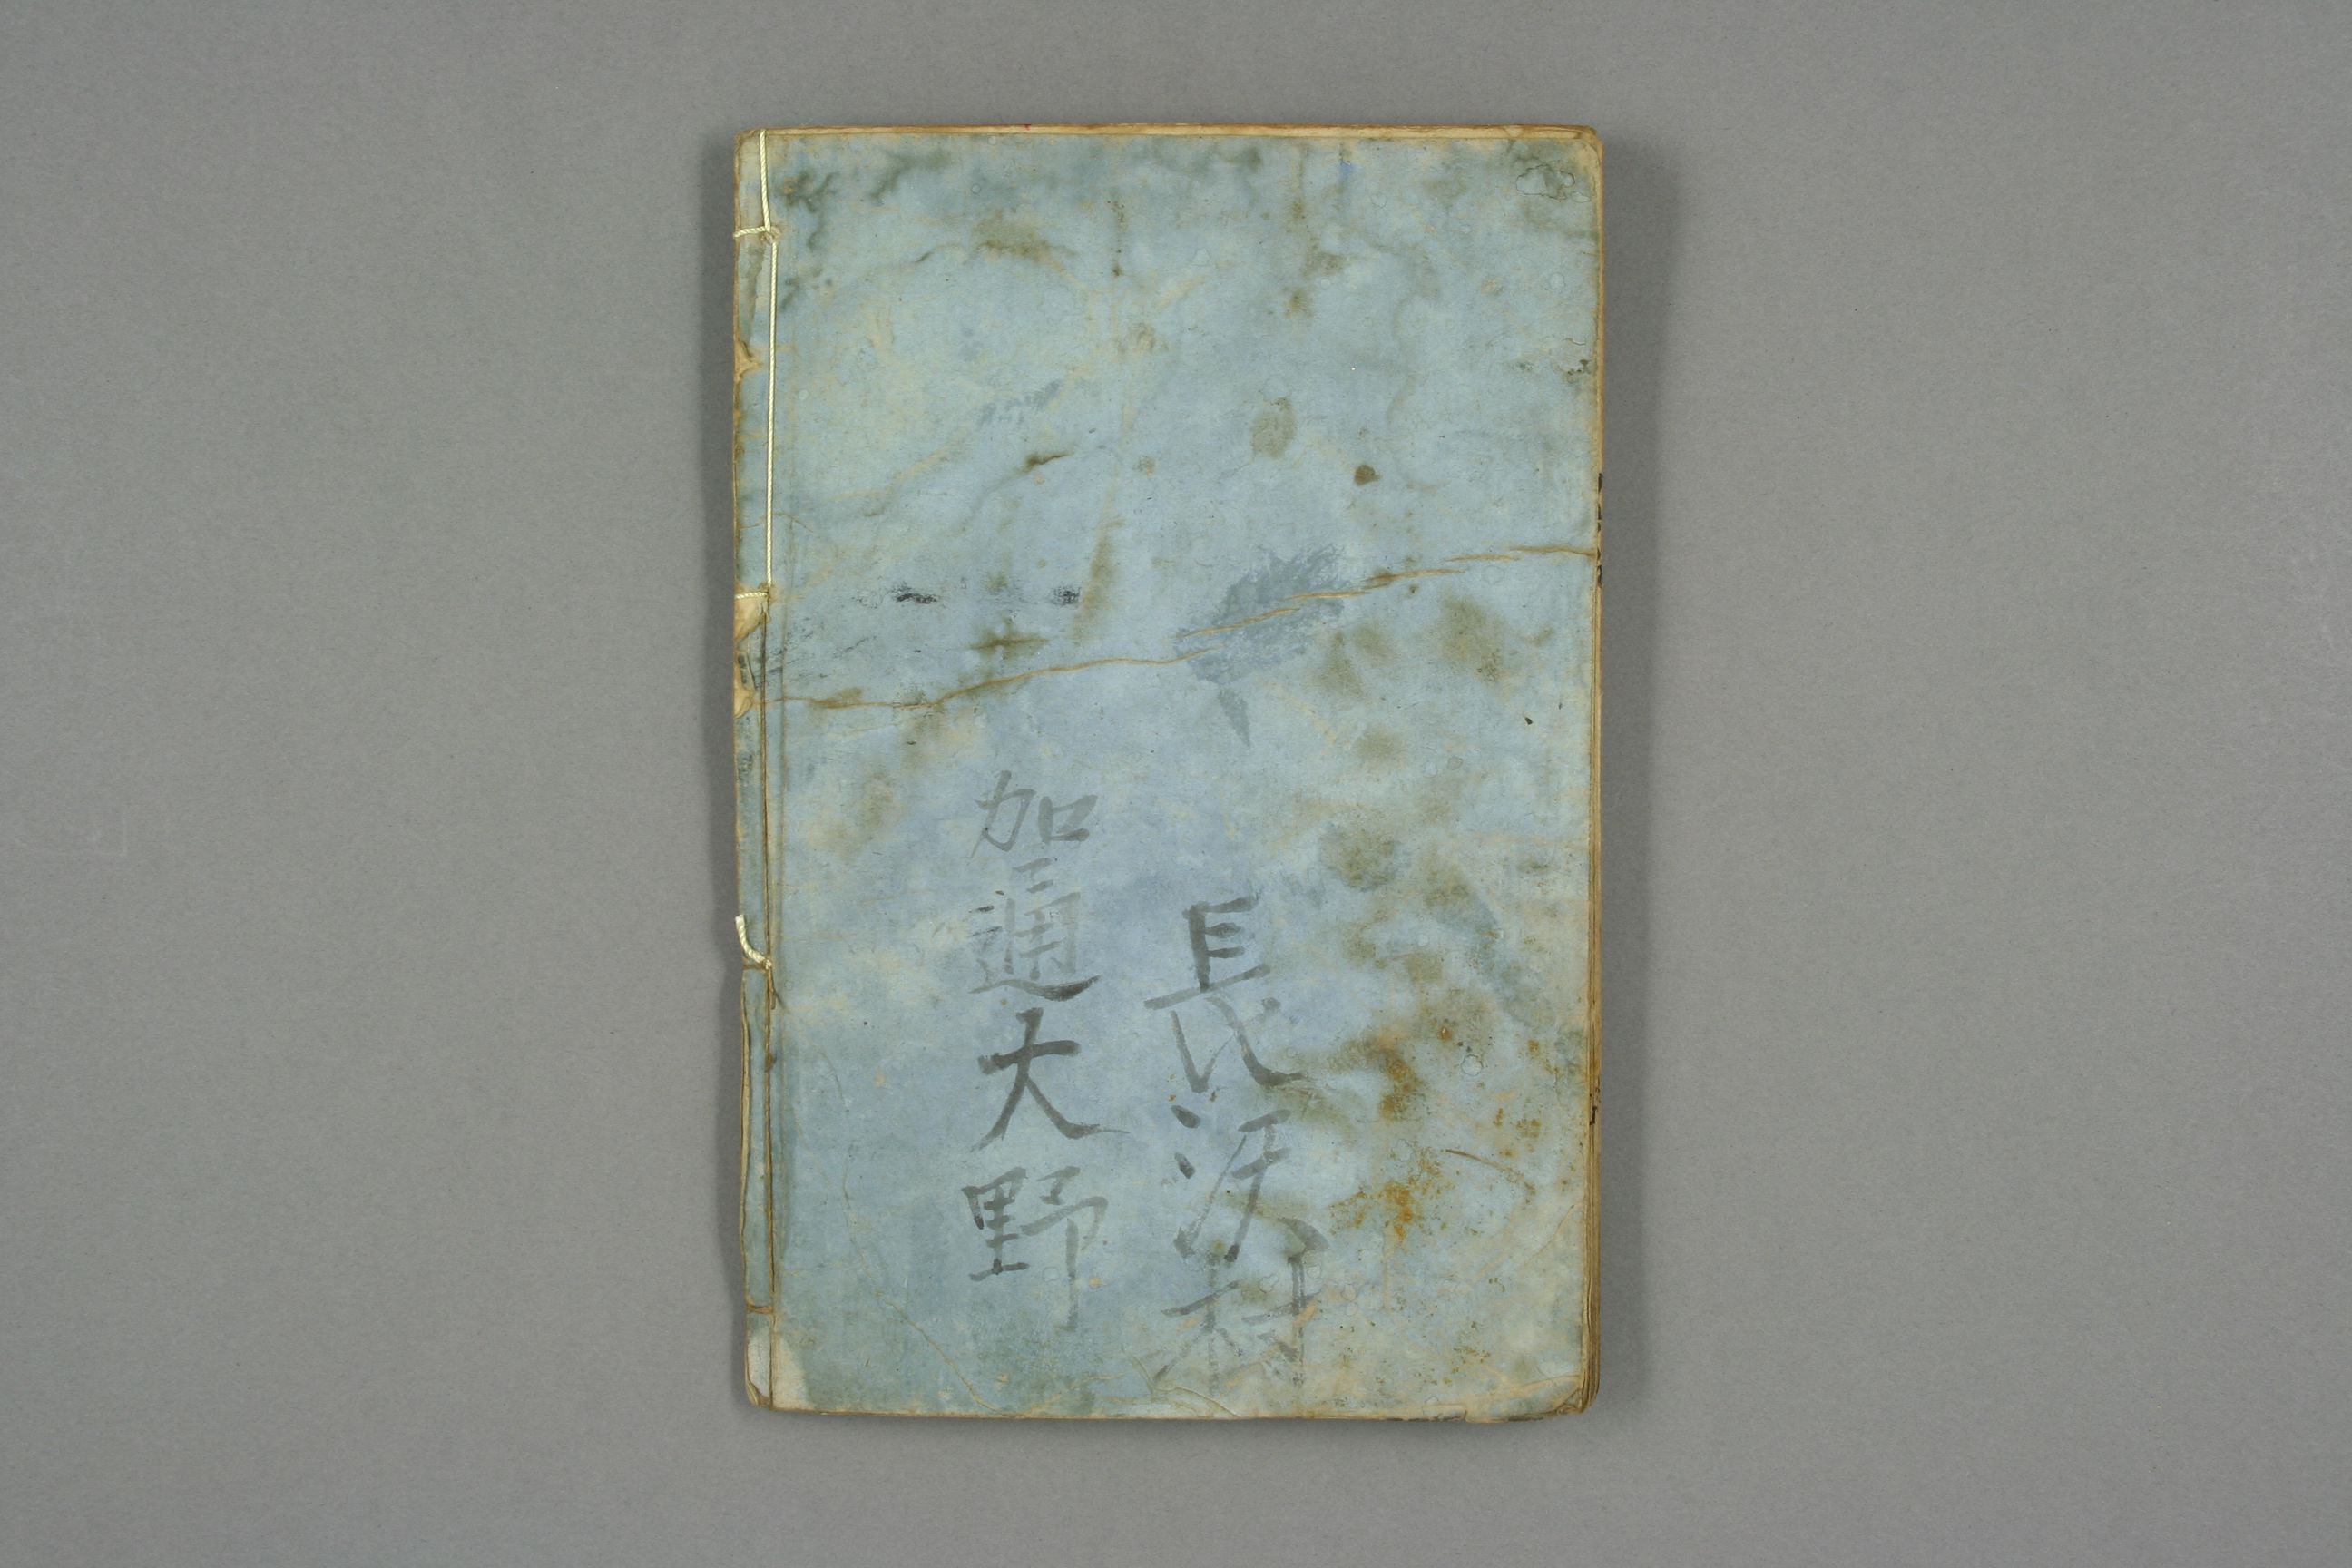 長沢村
加通大野